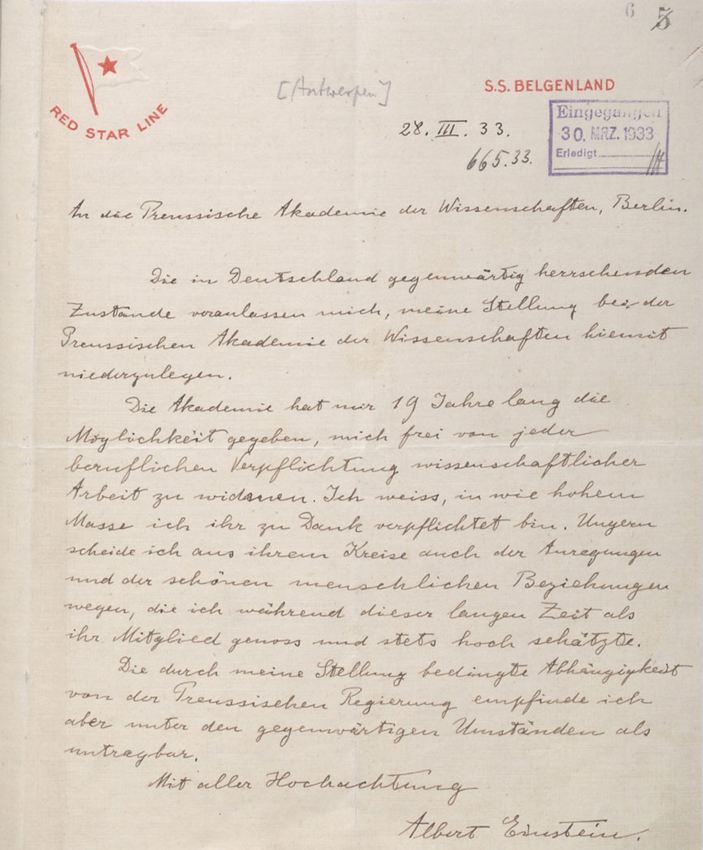 6 5
RED STAR LINE
[Antwerpen]
S.S. BELGENLAND
28. III. 33.
665.33.
Eingegangen
30. MRZ. 1933
Erledigt
An die Preussische Akademie der Wissenschaften, Berlin.
Die in Deutschland gegenwärtig herrschenden
Zustände veranlassen mich, meine Stellung bei der
Preussischen Akademie der Wissenschaften hiemit
niederzulegen.
Die Akademie hat mir 19 Jahre lang die
Möglichkeit gegeben, mich frei von jeder
beruflichen Verpflichtung wissenschaftlicher
Arbeit zu widmen. Ich weiss, in wie hohem
Masse ich ihr zu Dank verpflichtet bin. Ungern
scheide ich aus ihrem Kreise auch der Anregungen
und der schönen menschlichen Beziehungen
wegen, die ich während dieser langen Zeit als
ihr Mitglied genoss und stets hoch schätzte.
Die durch meine Stellung bedingte Abhängigkeit
von der Preussischen Regierung empfinde ich
aber unter den gegenwärtigen Umständen als
untragbar.
Mit aller Hochachtung
Albert Einstein.